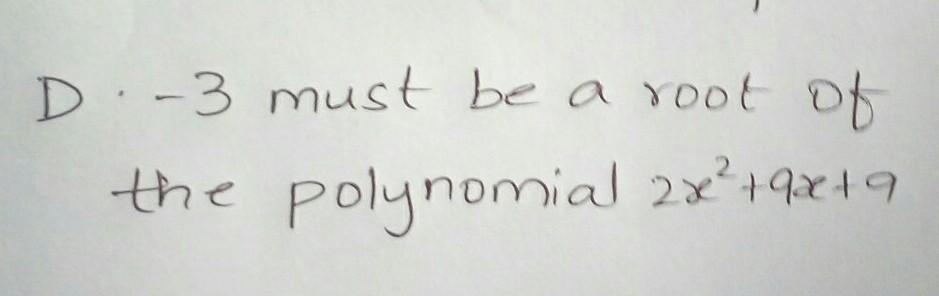 D. -3 must be a root of
the polynomial 2x²+9x+9